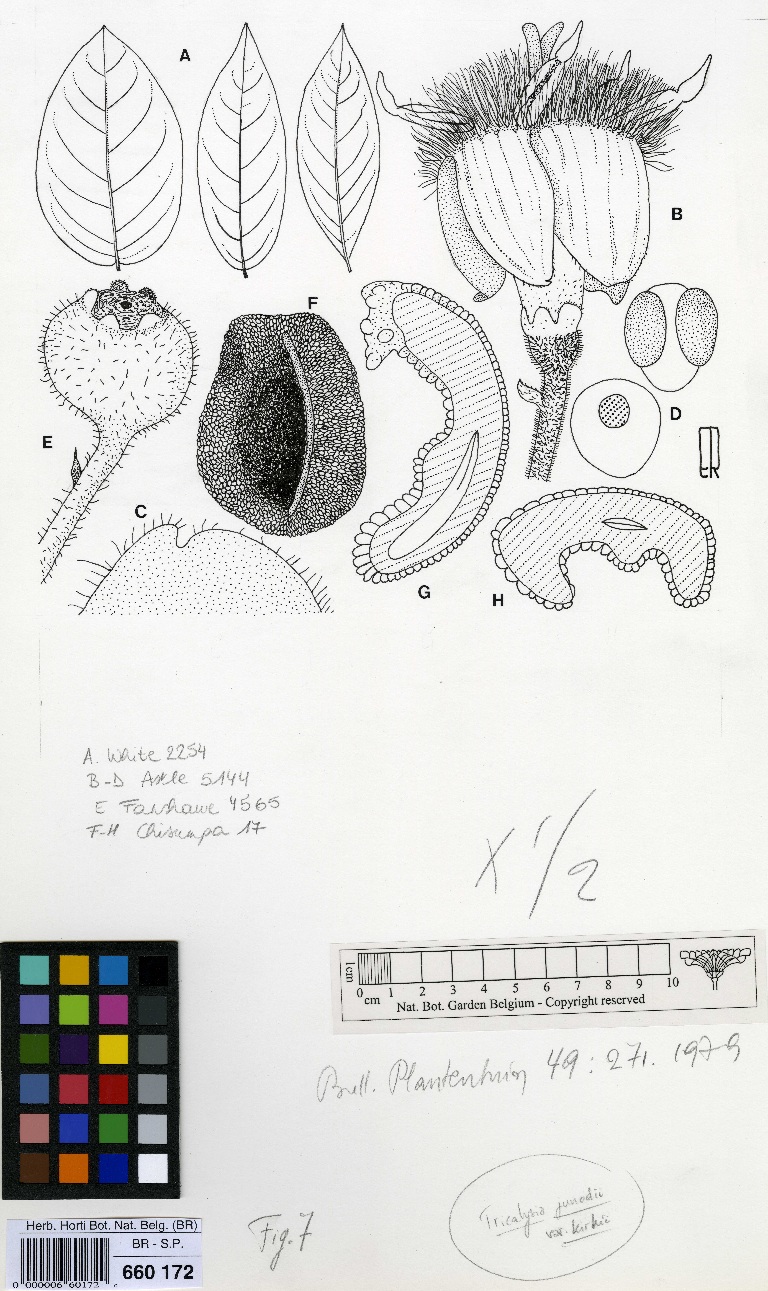 A
B
F
D
E
C
G
H
A. White 2254
B-D Astle 5144
E Fanshawe 4565
F-H Chisumpa 17
X 1/2
1cm
0 1 2 3 4 5 6 7 8 9 10
cm
Nat. Bot. Garden Belgium - Copyright reserved
Bull. Plantentuin 49: 271. 1979
Tricalysia junodii
var. kirkii
Fig. 7
Herb. Horti Bot. Nat. Belg. (BR)
BR - S.P.
660 172